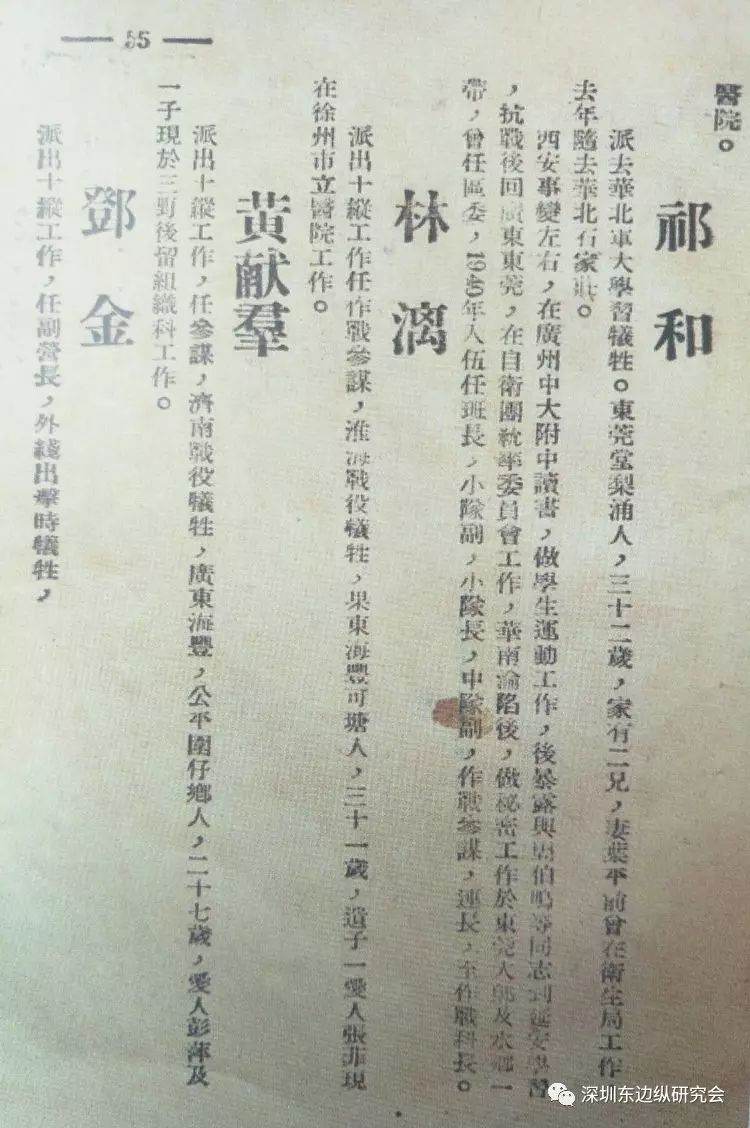 — 55 —
醫院。
祁和
派去華北軍大學習犧牲。東莞堂梨涌人，三十二歲，家有二兄，妻葉平前曾在衛生局工作
去年隨去華北石家庄。
西安事變左右，在廣州中大附中讀書，做學生運動工作，後暴露與周伯鳴等同志到延安學習
，抗戰後回廣東東莞，在自衛團統率委員會工作，華南淪陷後，做秘密工作於東莞大朗及水鄉一
帶，曾任區委，1940年入伍任班長，小隊副，小隊長，中隊副，作戰參謀，連長，至作戰科長。
林漓
派出十縱工作任作戰參謀，淮海戰役犧牲，果東海豐可塘人，三十一歲，遺子一愛人張菲現
在徐州市立醫院工作。
黃献羣
派出十縱工作，任參謀，濟南戰役犧牲，廣東海豐，公平圍仔鄉人，二十七歲，愛人彭萍及
一子現於三野後留組織科工作。
鄧金
派出十縱工作，任副營長，外綫出擊時犧牲，
深圳东边纵研究会